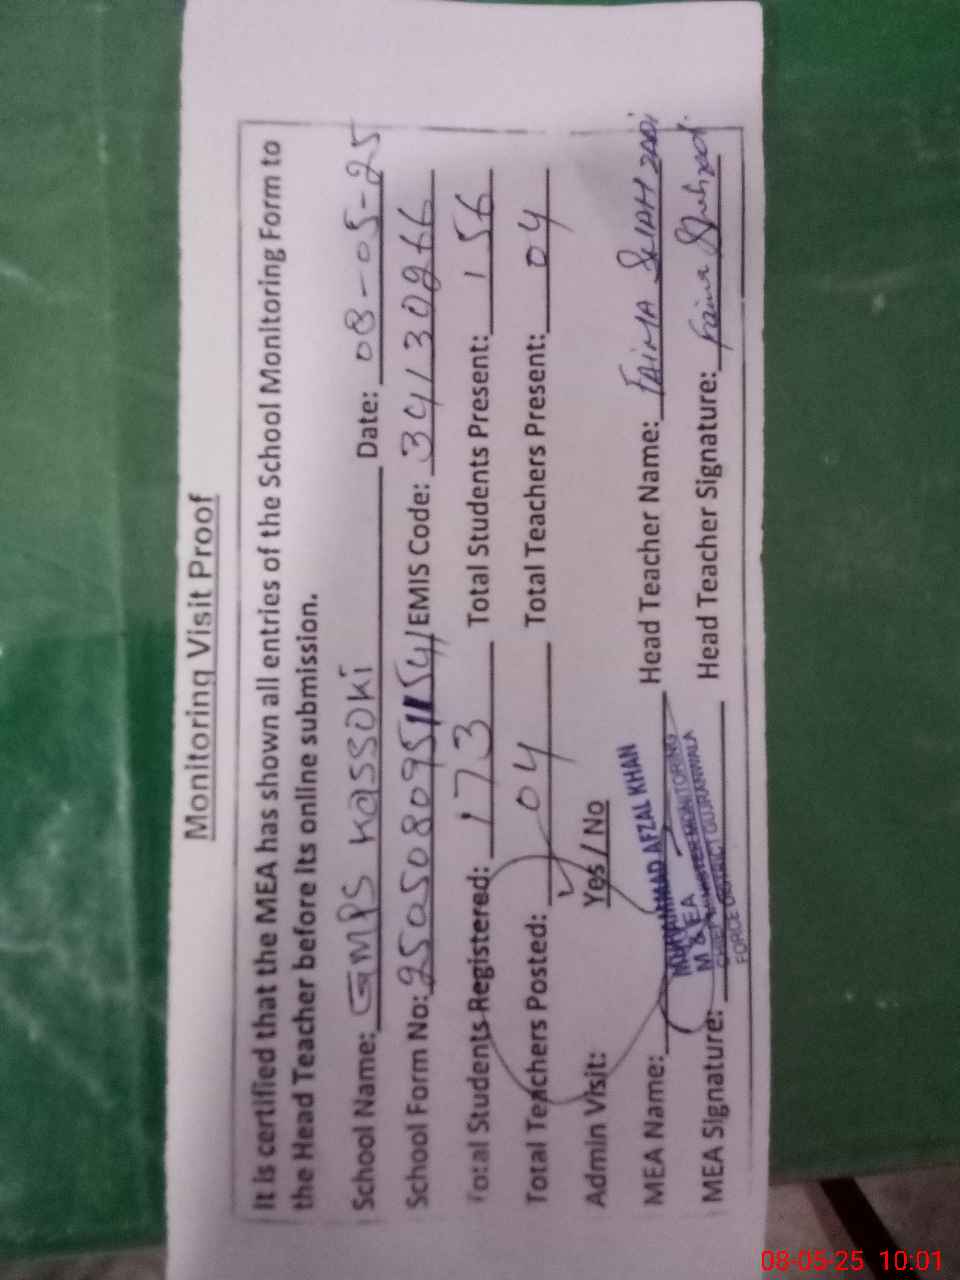 Monitoring Visit Proof
It is certified that the MEA has shown all entries of the School Monitoring Form to
the Head Teacher before its online submission.
School Name: GMPS Kassoki Date: 08-05-25
School Form No: EMIS Code: 34130266
Total Students Registered: 173 Total Students Present: 156
Total Teachers Posted: 04 Total Teachers Present: 04
Admin Visit: Yes / No
MEA Name: MUHAMMAD AFZAL KHAN Head Teacher Name: FAIMA SHAHZADI
M & EA
MEA Signature: Head Teacher Signature: Faima Shahzadi
CHIEF MINISTER MONITORING
FORCE DISTRICT GUJRANWALA
08-05-25 10:01